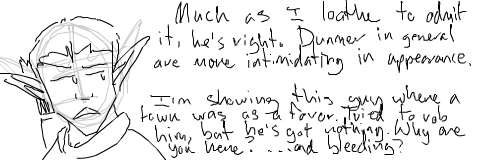 Much as I loathe to admit
it, he's right. Dunmer in general
are more intimidating in appearance.
I'm showing this guy where a
town was as a favor. Tried to rob
him, but he's got nothing. Why are
you here? ...and bleeding?